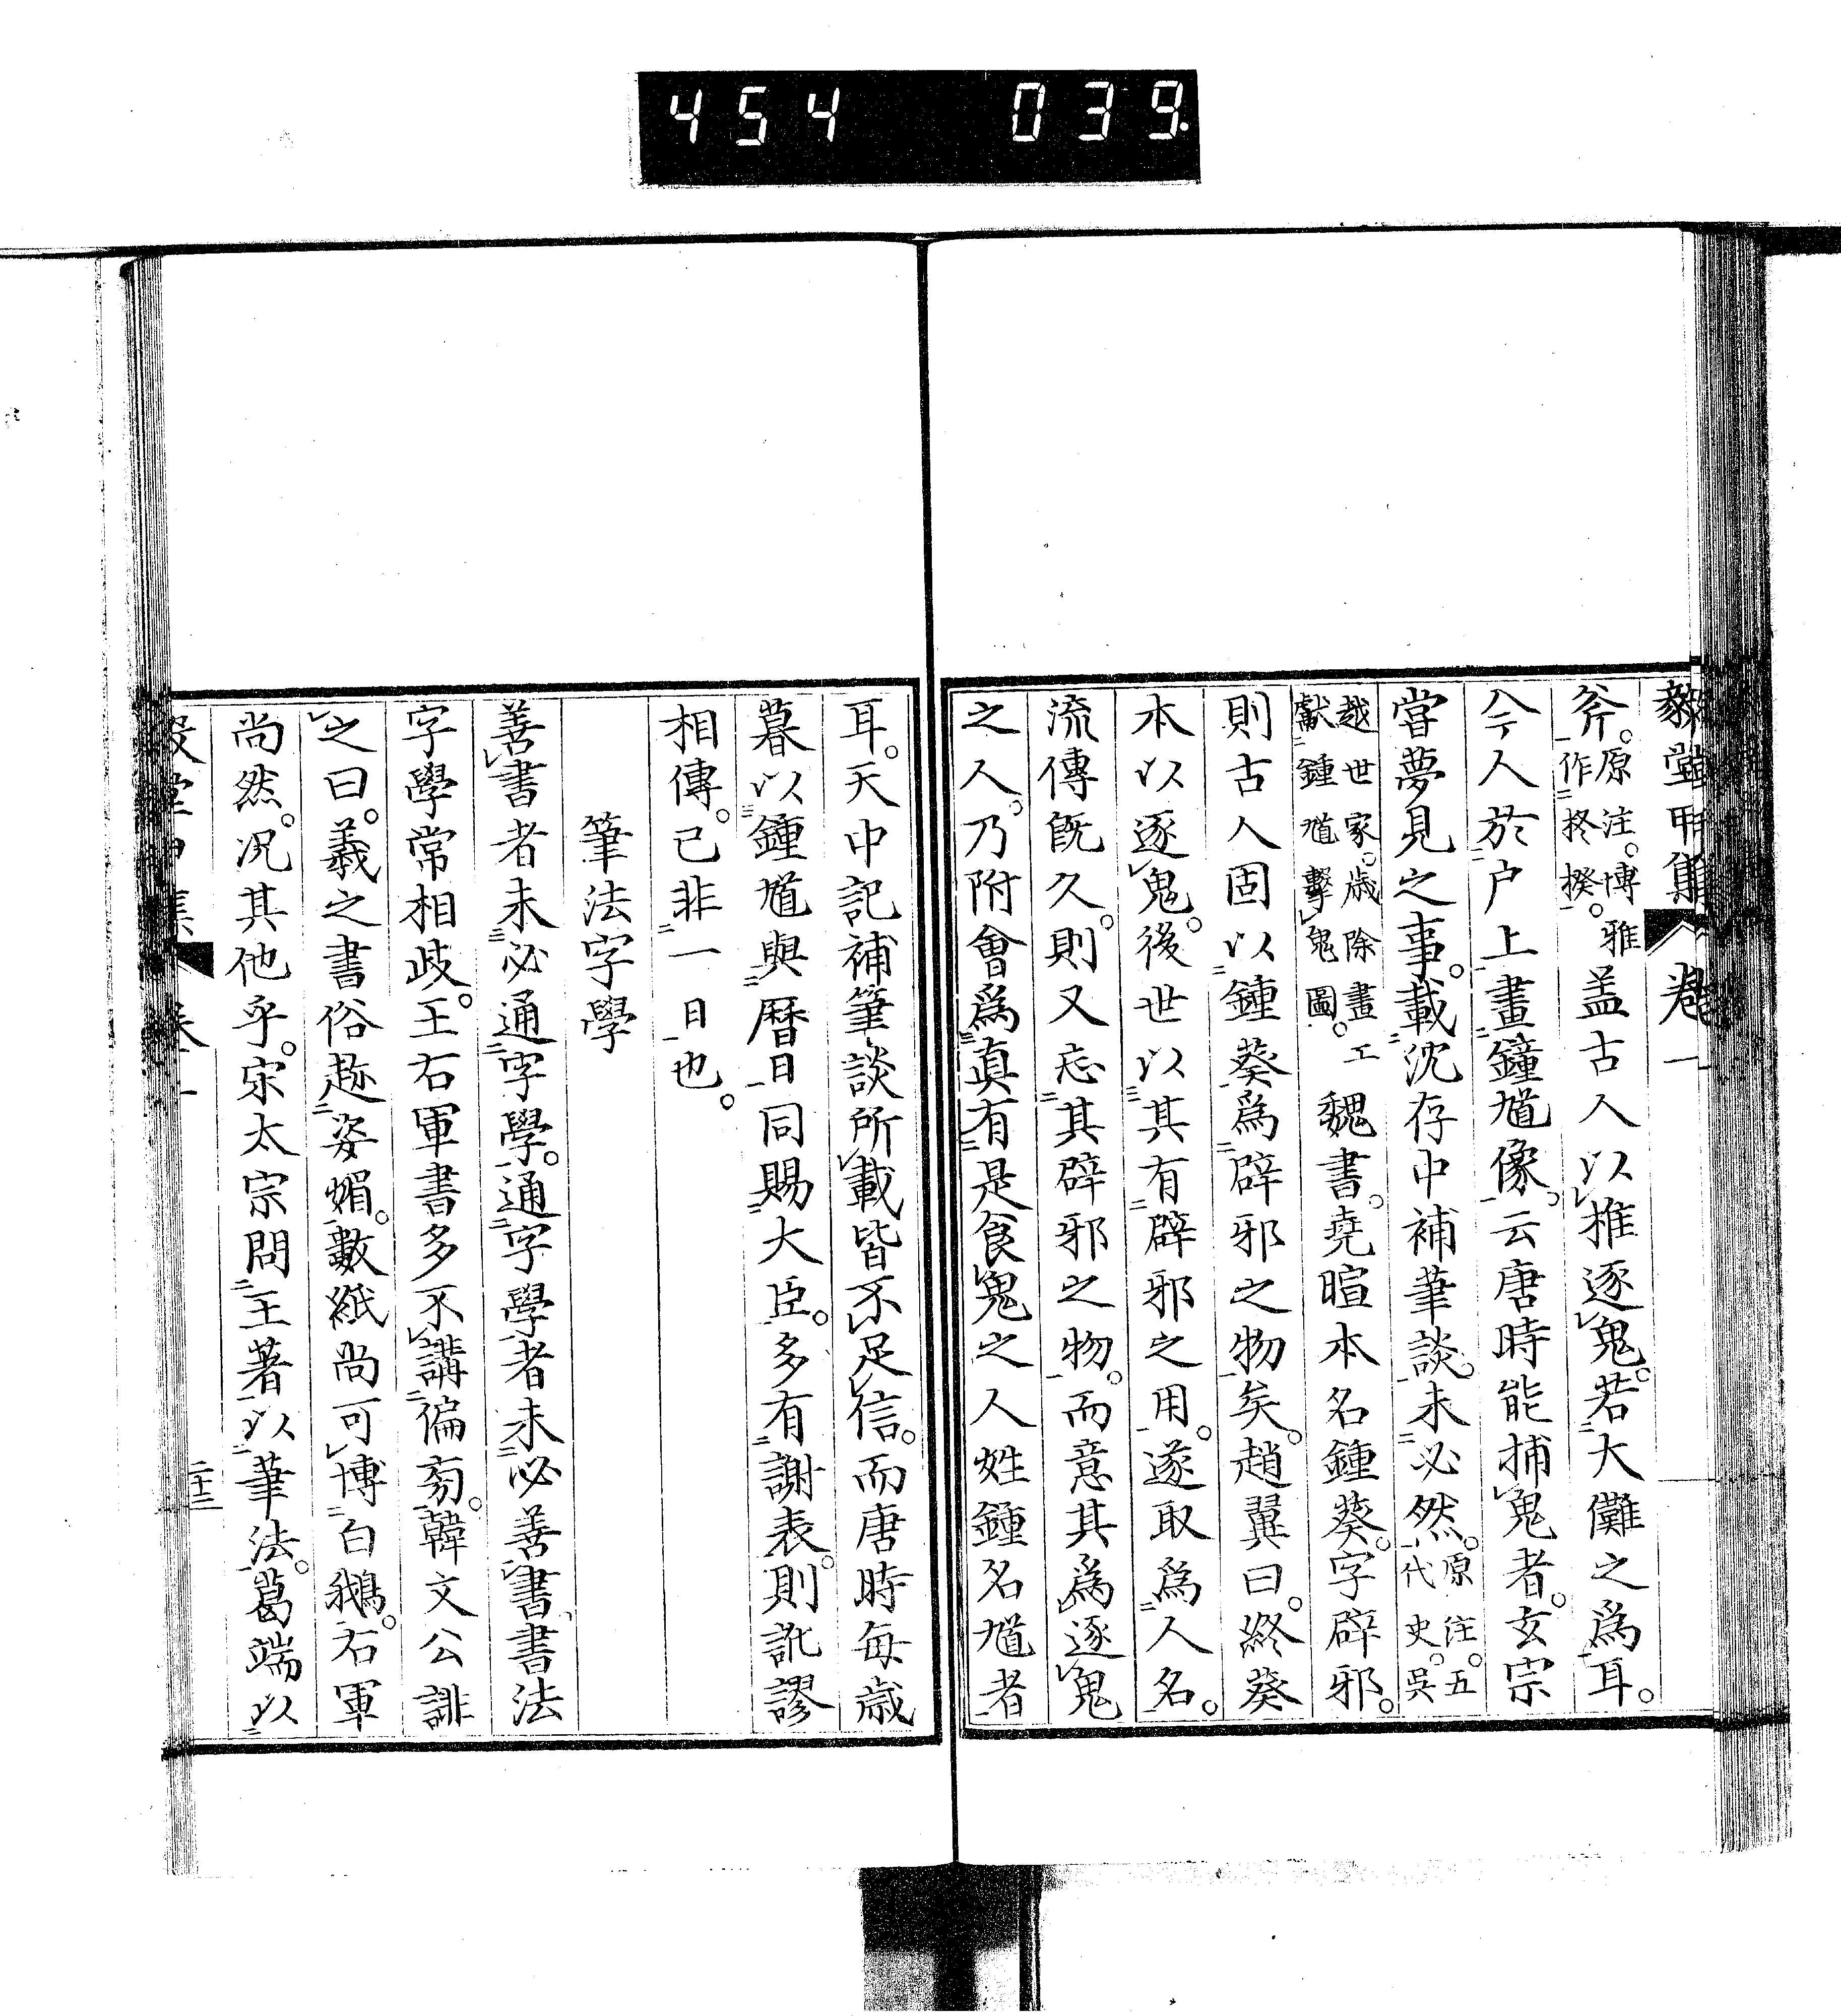 454 039.
毅堂甲集 卷一
斧。原注。博雅作柊揆。盖古人以椎逐鬼。若大儺之爲耳。
今人於户上畫鐘馗像。云唐時能捕鬼者。玄宗
嘗夢見之事。載沈存中補筆談。未必然。原注。五代史。吳
越世家。歲除畫工獻鍾馗擊鬼圖。魏書。堯暄本名鍾葵。字辟邪。
則古人固以鍾葵爲辟邪之物矣。趙翼曰。終葵
本以逐鬼。後世以其有辟邪之用。遂取爲人名。
流傳既久。則又忘其辟邪之物。而意其爲逐鬼
之人。乃附會爲真有是食鬼之人姓鍾名馗者
耳。天中記補筆談所載皆不足信。而唐時每歲
暮以鍾馗與曆日同賜大臣。多有謝表。則訛謬
相傳。已非一日也。
筆法字學
善書者未必通字學。通字學者未必善書。書法
字學常相歧。王右軍書多不講偏旁。韓文公誹
之曰。羲之書俗趂姿媚。數紙尚可博白鵝。右軍
尚然。況其他乎。宋太宗問王著以筆法。葛端以
毅堂甲集 卷一 二十三